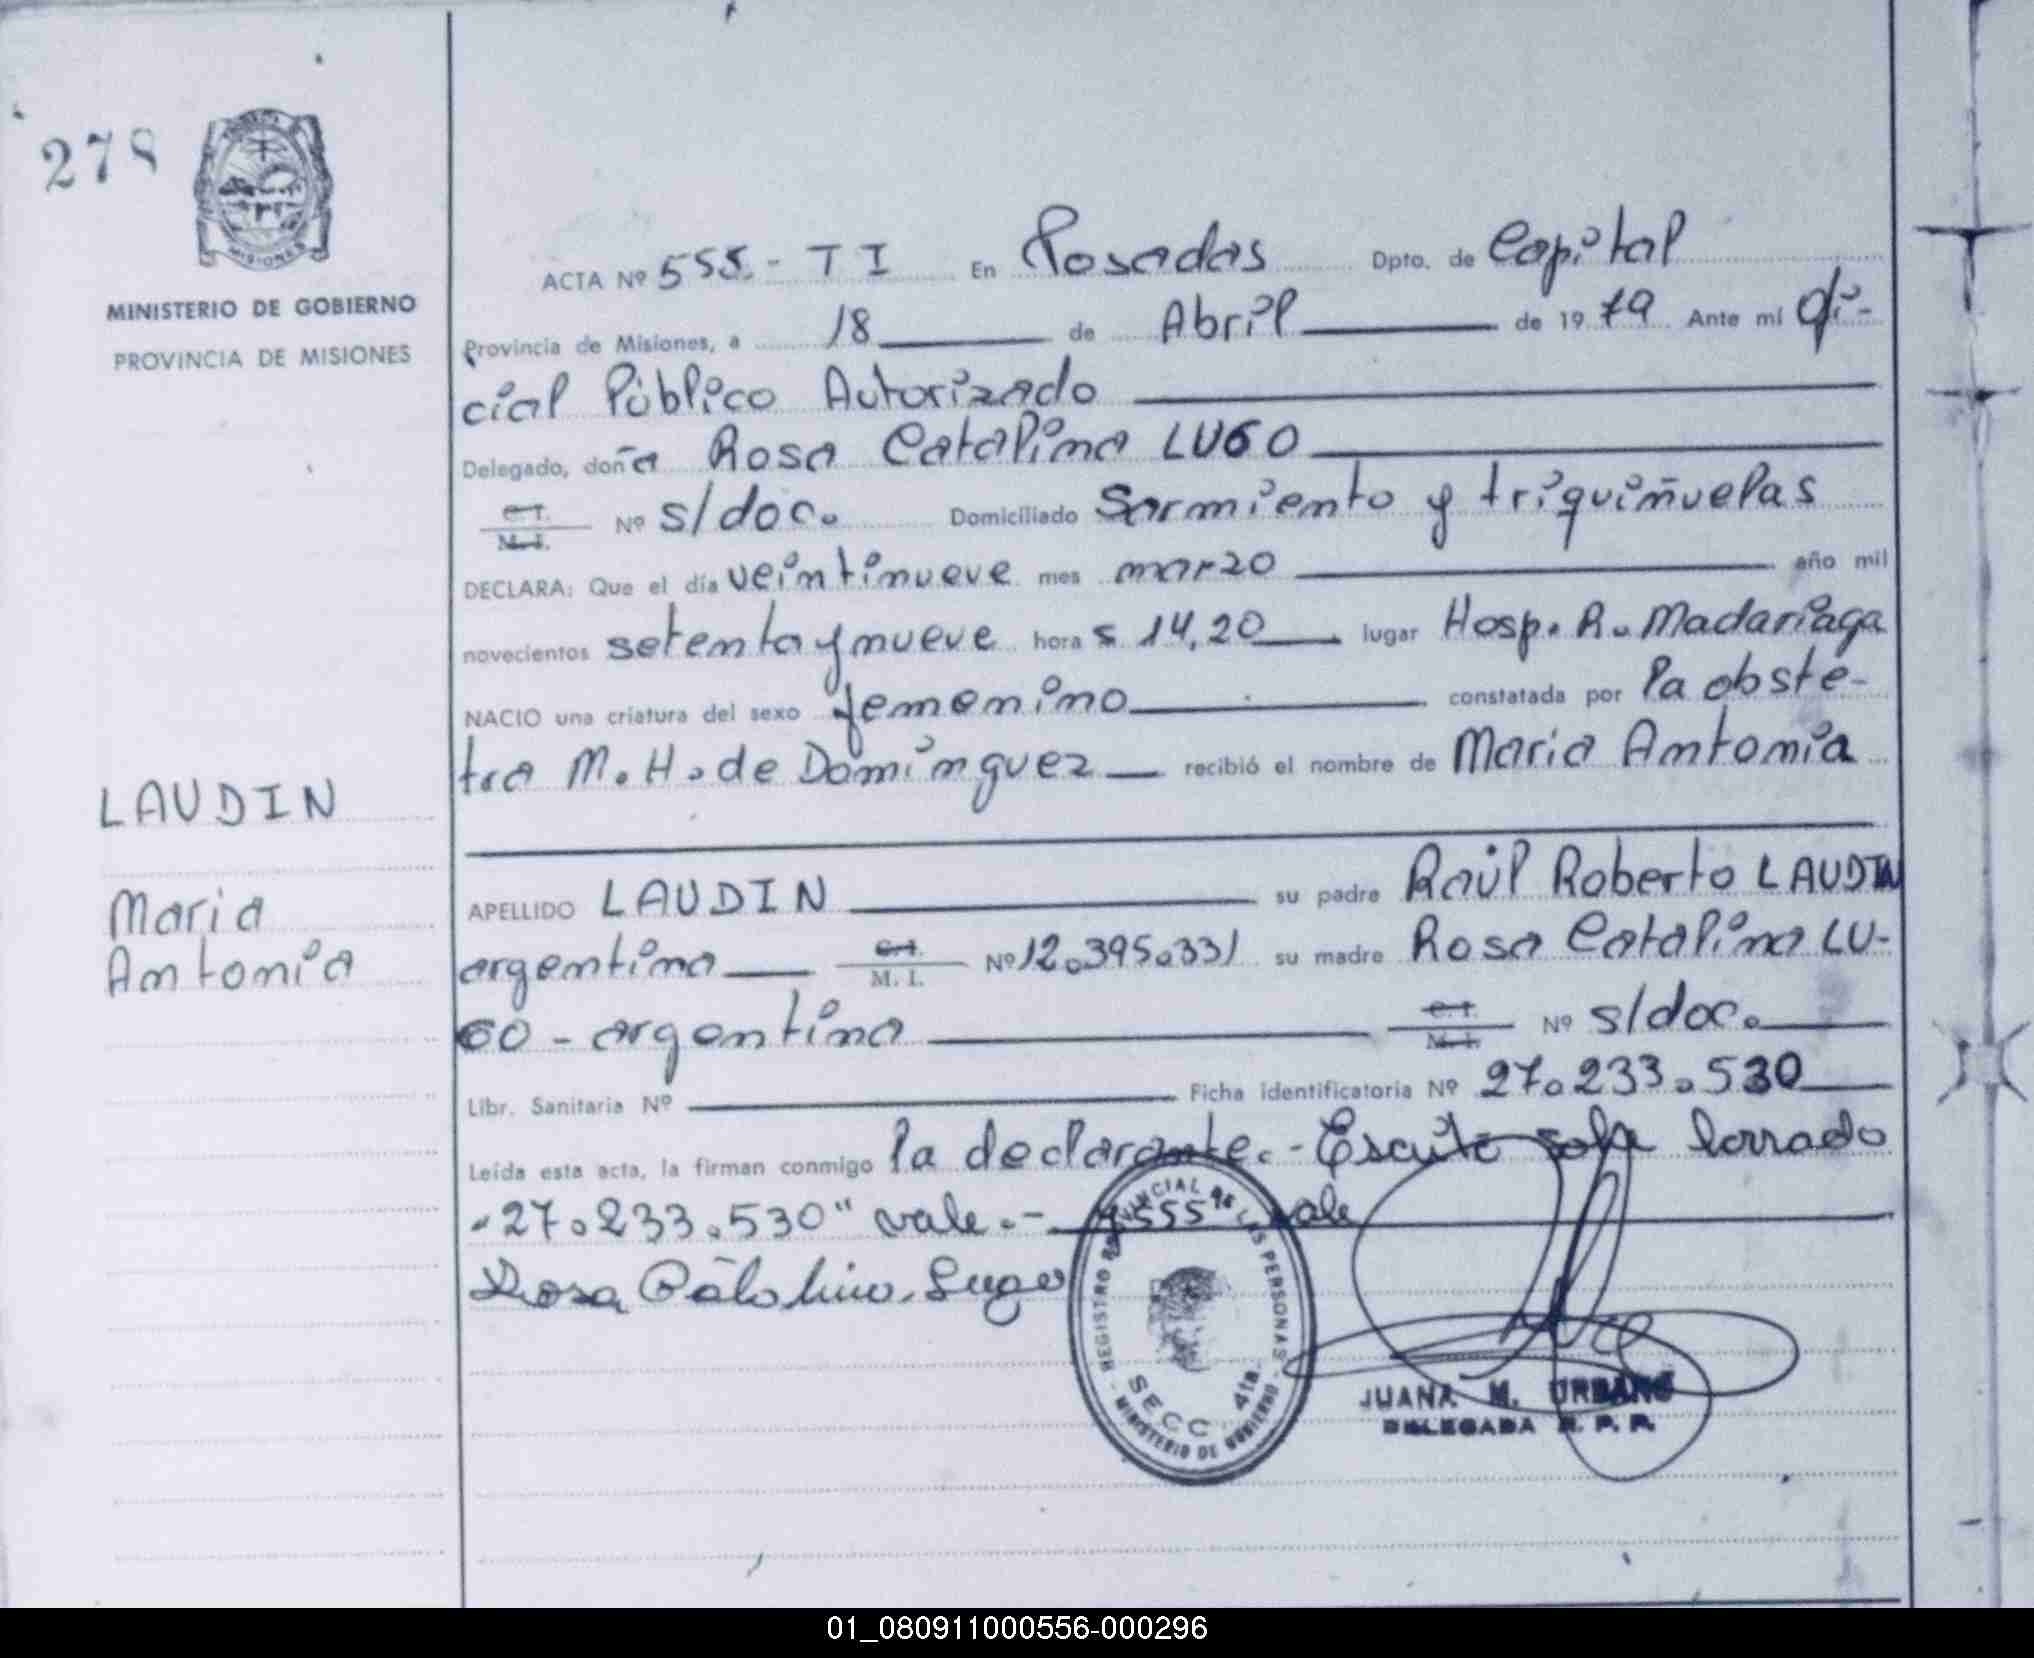 278
MISIONES
MINISTERIO DE GOBIERNO
PROVINCIA DE MISIONES
LAUDIN
Maria
Antonia
ACTA Nº 555.- T I En Posadas Dpto. de Capital
Provincia de Misiones, a 18 de Abril de 1979 Ante mi Ofi-
cial Público Autorizado
Delegado, doña Rosa Catalina LUGO
C.I. M.I. Nº s/doc. Domiciliado Sarmiento y triquiñuelas
DECLARA: Que el día veintinueve mes marzo año mil
novecientos setenta y nueve hora s 14,20 lugar Hosp. R. Madariaga
NACIO una criatura del sexo femenino constatada por la obste-
tra M. H. de Domínguez recibió el nombre de Maria Antonia
APELLIDO LAUDIN su padre Raúl Roberto LAUDIN
argentino C.I. M. I. Nº 12.395.331 su madre Rosa Catalina LU-
GO - argentina C.I. M.I. Nº s/doc.
Libr. Sanitaria Nº Ficha identificatoria Nº 27.233.530
Leída esta acta, la firman conmigo la declarante.- Escrito sobre borrado
"27.233.530" vale.- "555" vale
Rosa Catalina Lugo
REGISTRO PROVINCIAL DE LAS PERSONAS
SECC. 4ta.
- MINISTERIO DE GOBIERNO -
JUANA M. URBANO
DELEGADA R. P. P.
01_080911000556-000296